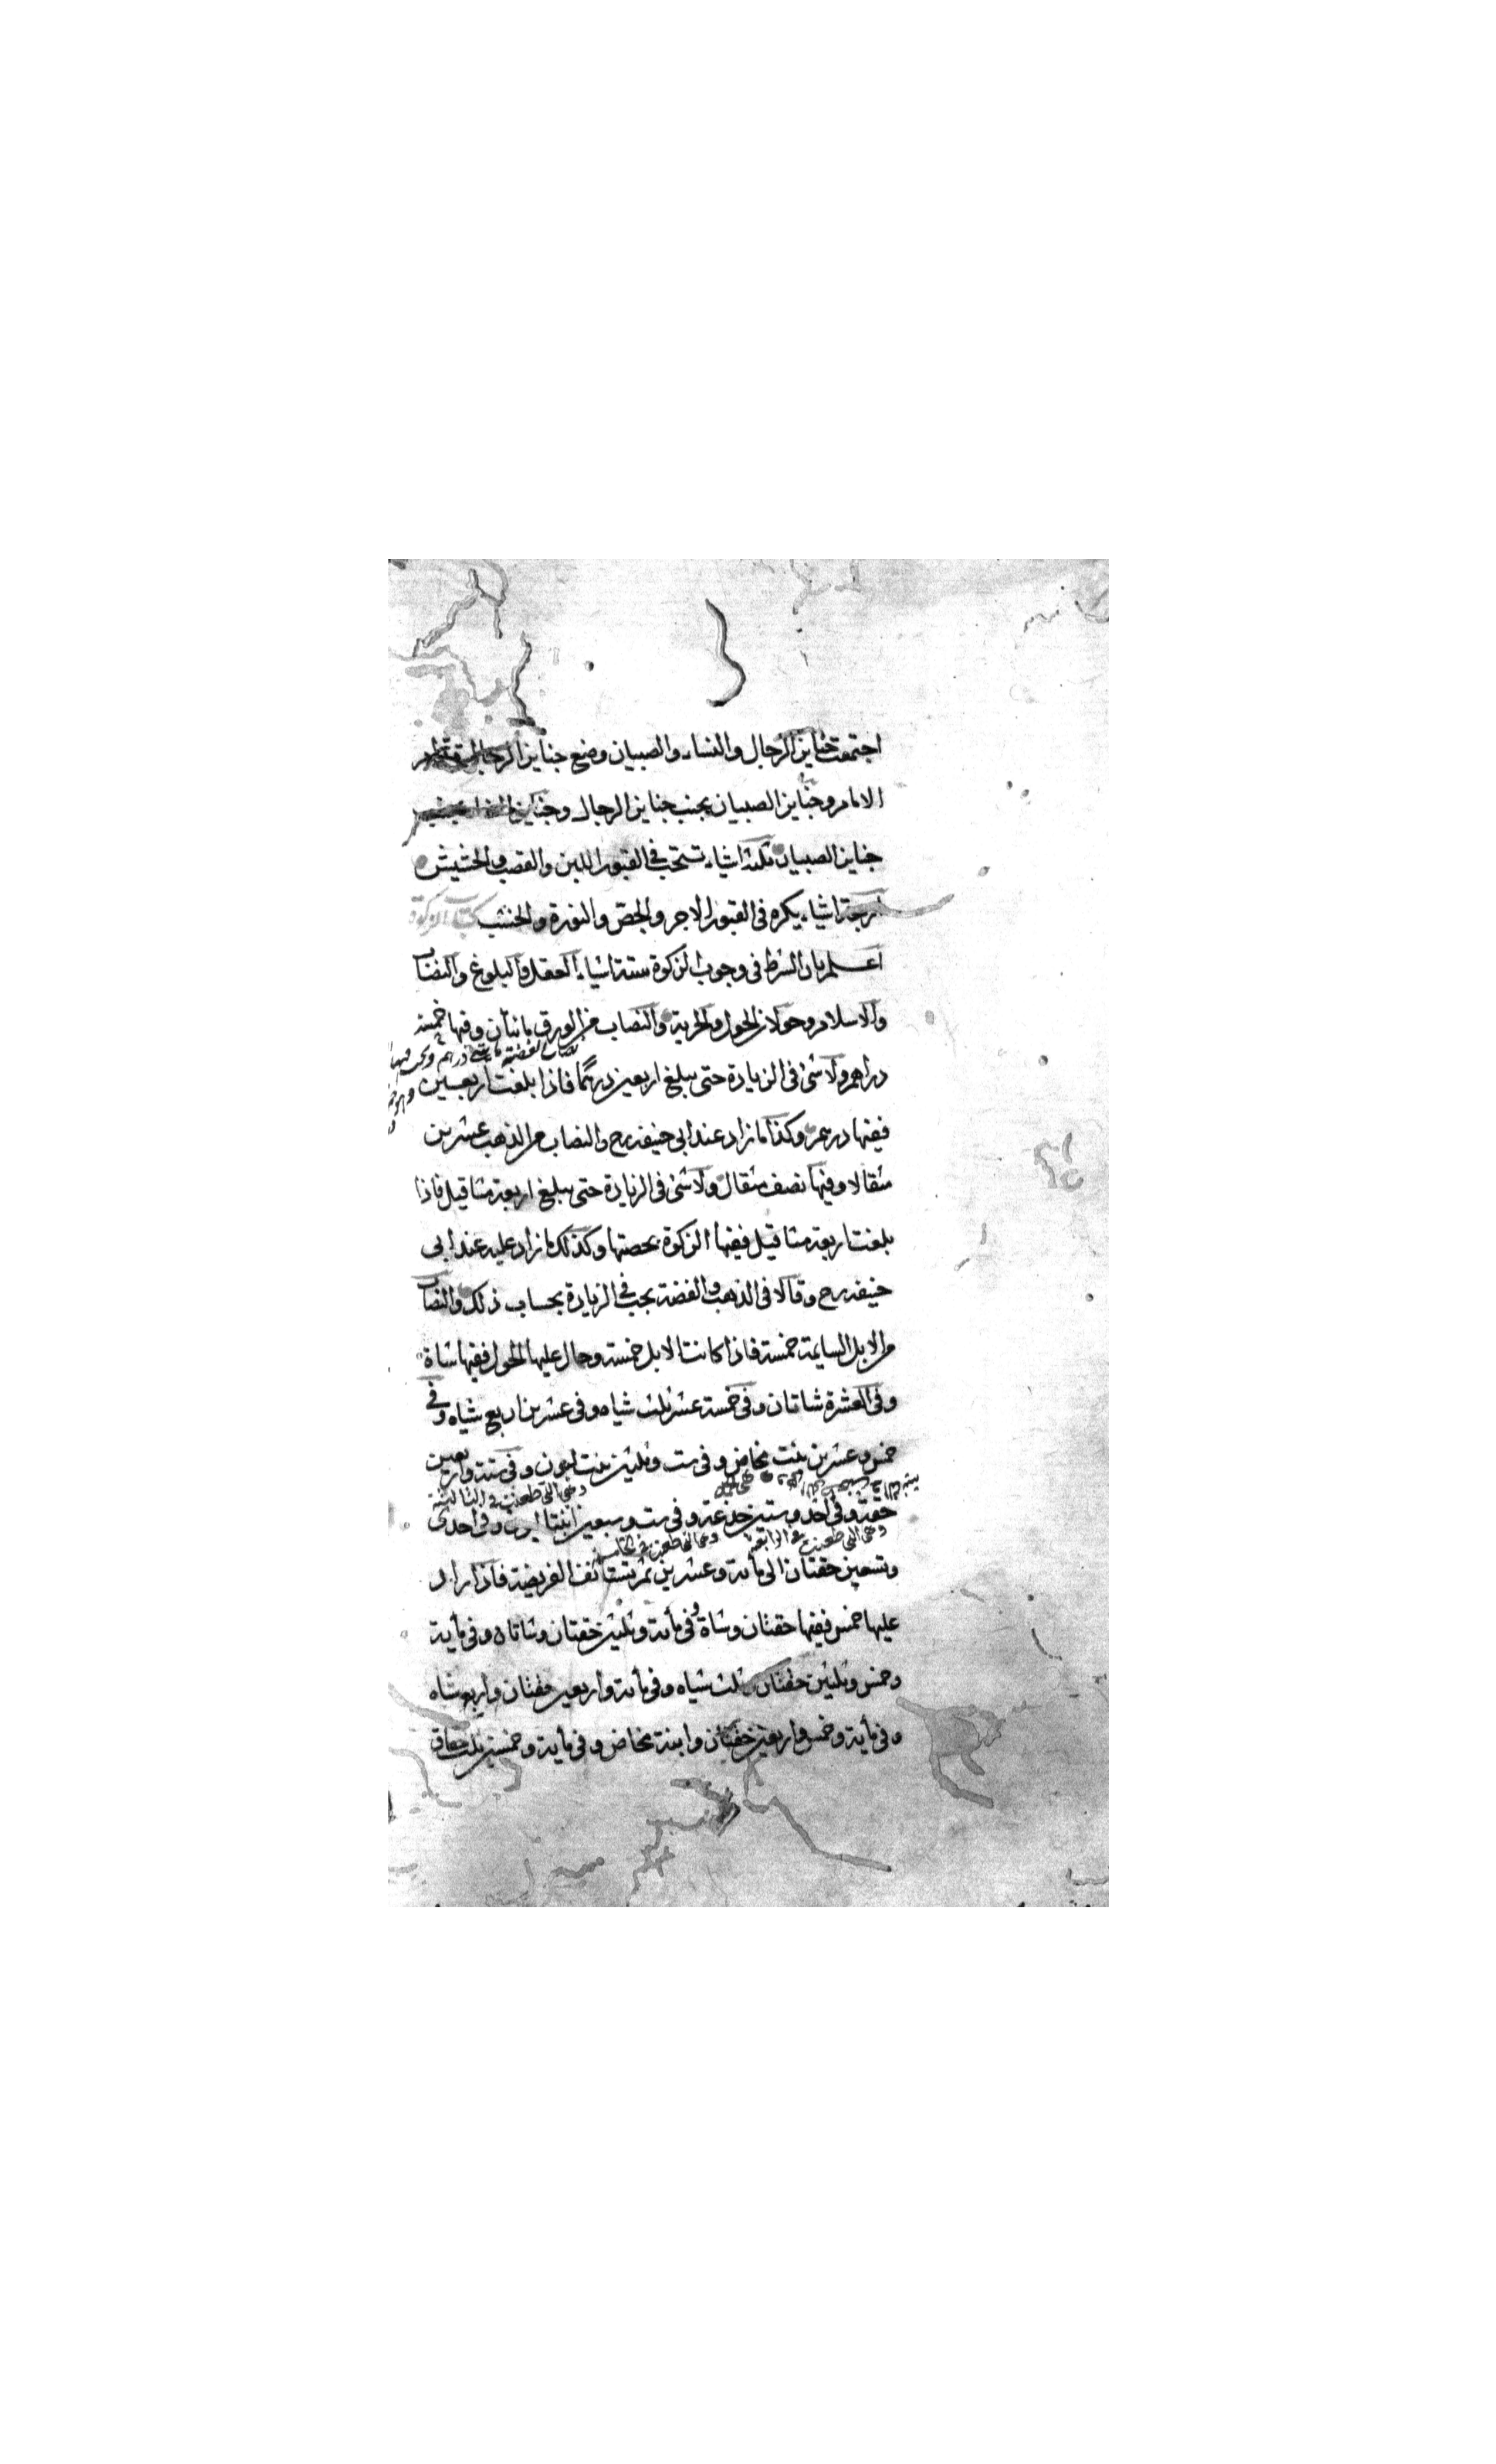 اجتمعت جنايز الرجال والنساء والصبيان وضع جنايز الرجال
الامام وجنايز الصبيان بجنب جنايز الرجال وجنايز
جنايز الصبيان ثلثة اشياء تستحب فى القبور اللبن والقصب والحشيش
اربعة اشياء يكره فى القبور الاجر والجص والنورة والخشب كتاب الزكوة
اعلم بان الشرط فى وجوب الزكوة ستة اشياء العقل والبلوغ والنصاب
والاسلام وحولان الحول والحرية والنصاب من الورق مائتان وفيها خمسة
نصاب الفضة
دراهم ولا شئ فى الزيادة حتى يبلغ اربعين درهما فاذا بلغت اربعين
ففيها درهم وكذا ما زاد عند ابى حنيفة رح والنصاب من الذهب عشرين
مثقالا وفيها نصف مثقال ولا شئ فى الزيادة حتى يبلغ اربعة مثاقيل فاذا
بلغت اربعة مثاقيل ففيها الزكوة بحصتها وكذلك ما زاد عليه عند ابى
حنيفة رح وقالا فى الذهب والفضة يجب فى الزيادة بحساب ذلك والنصاب
من الابل السايمة خمسة فاذا كانت الابل خمسة وحال عليها الحول ففيها شاة
وفى العشرة شاتان وفى خمسة عشر ثلث شياه وفى عشرين اربع شياه وفى
خمس وعشرين بنت مخاض وفى ست وثلثين بنت لبون وفى ستة واربعين
وهى التى طعنت فى الثالثة
حقة وفى احد وستين جذعة وفى ست وسبعين ابنتا لبون وفى احدى
وهى التى طعنت فى الرابعة
وتسعين حقتان الى مأية وعشرين ثم تستأنف الفريضة فاذا زاد
عليها خمس ففيها حقتان وشاة وفى مأية وثلثين حقتان وشاتان وفى مأية
وخمس وثلثين حقتان ثلث شياه وفى مأية واربعين حقتان واربع شياه
وفى مأية وخمس واربعين حقتان وابنة مخاض وفى مأية وخمسين ثلث حقاق